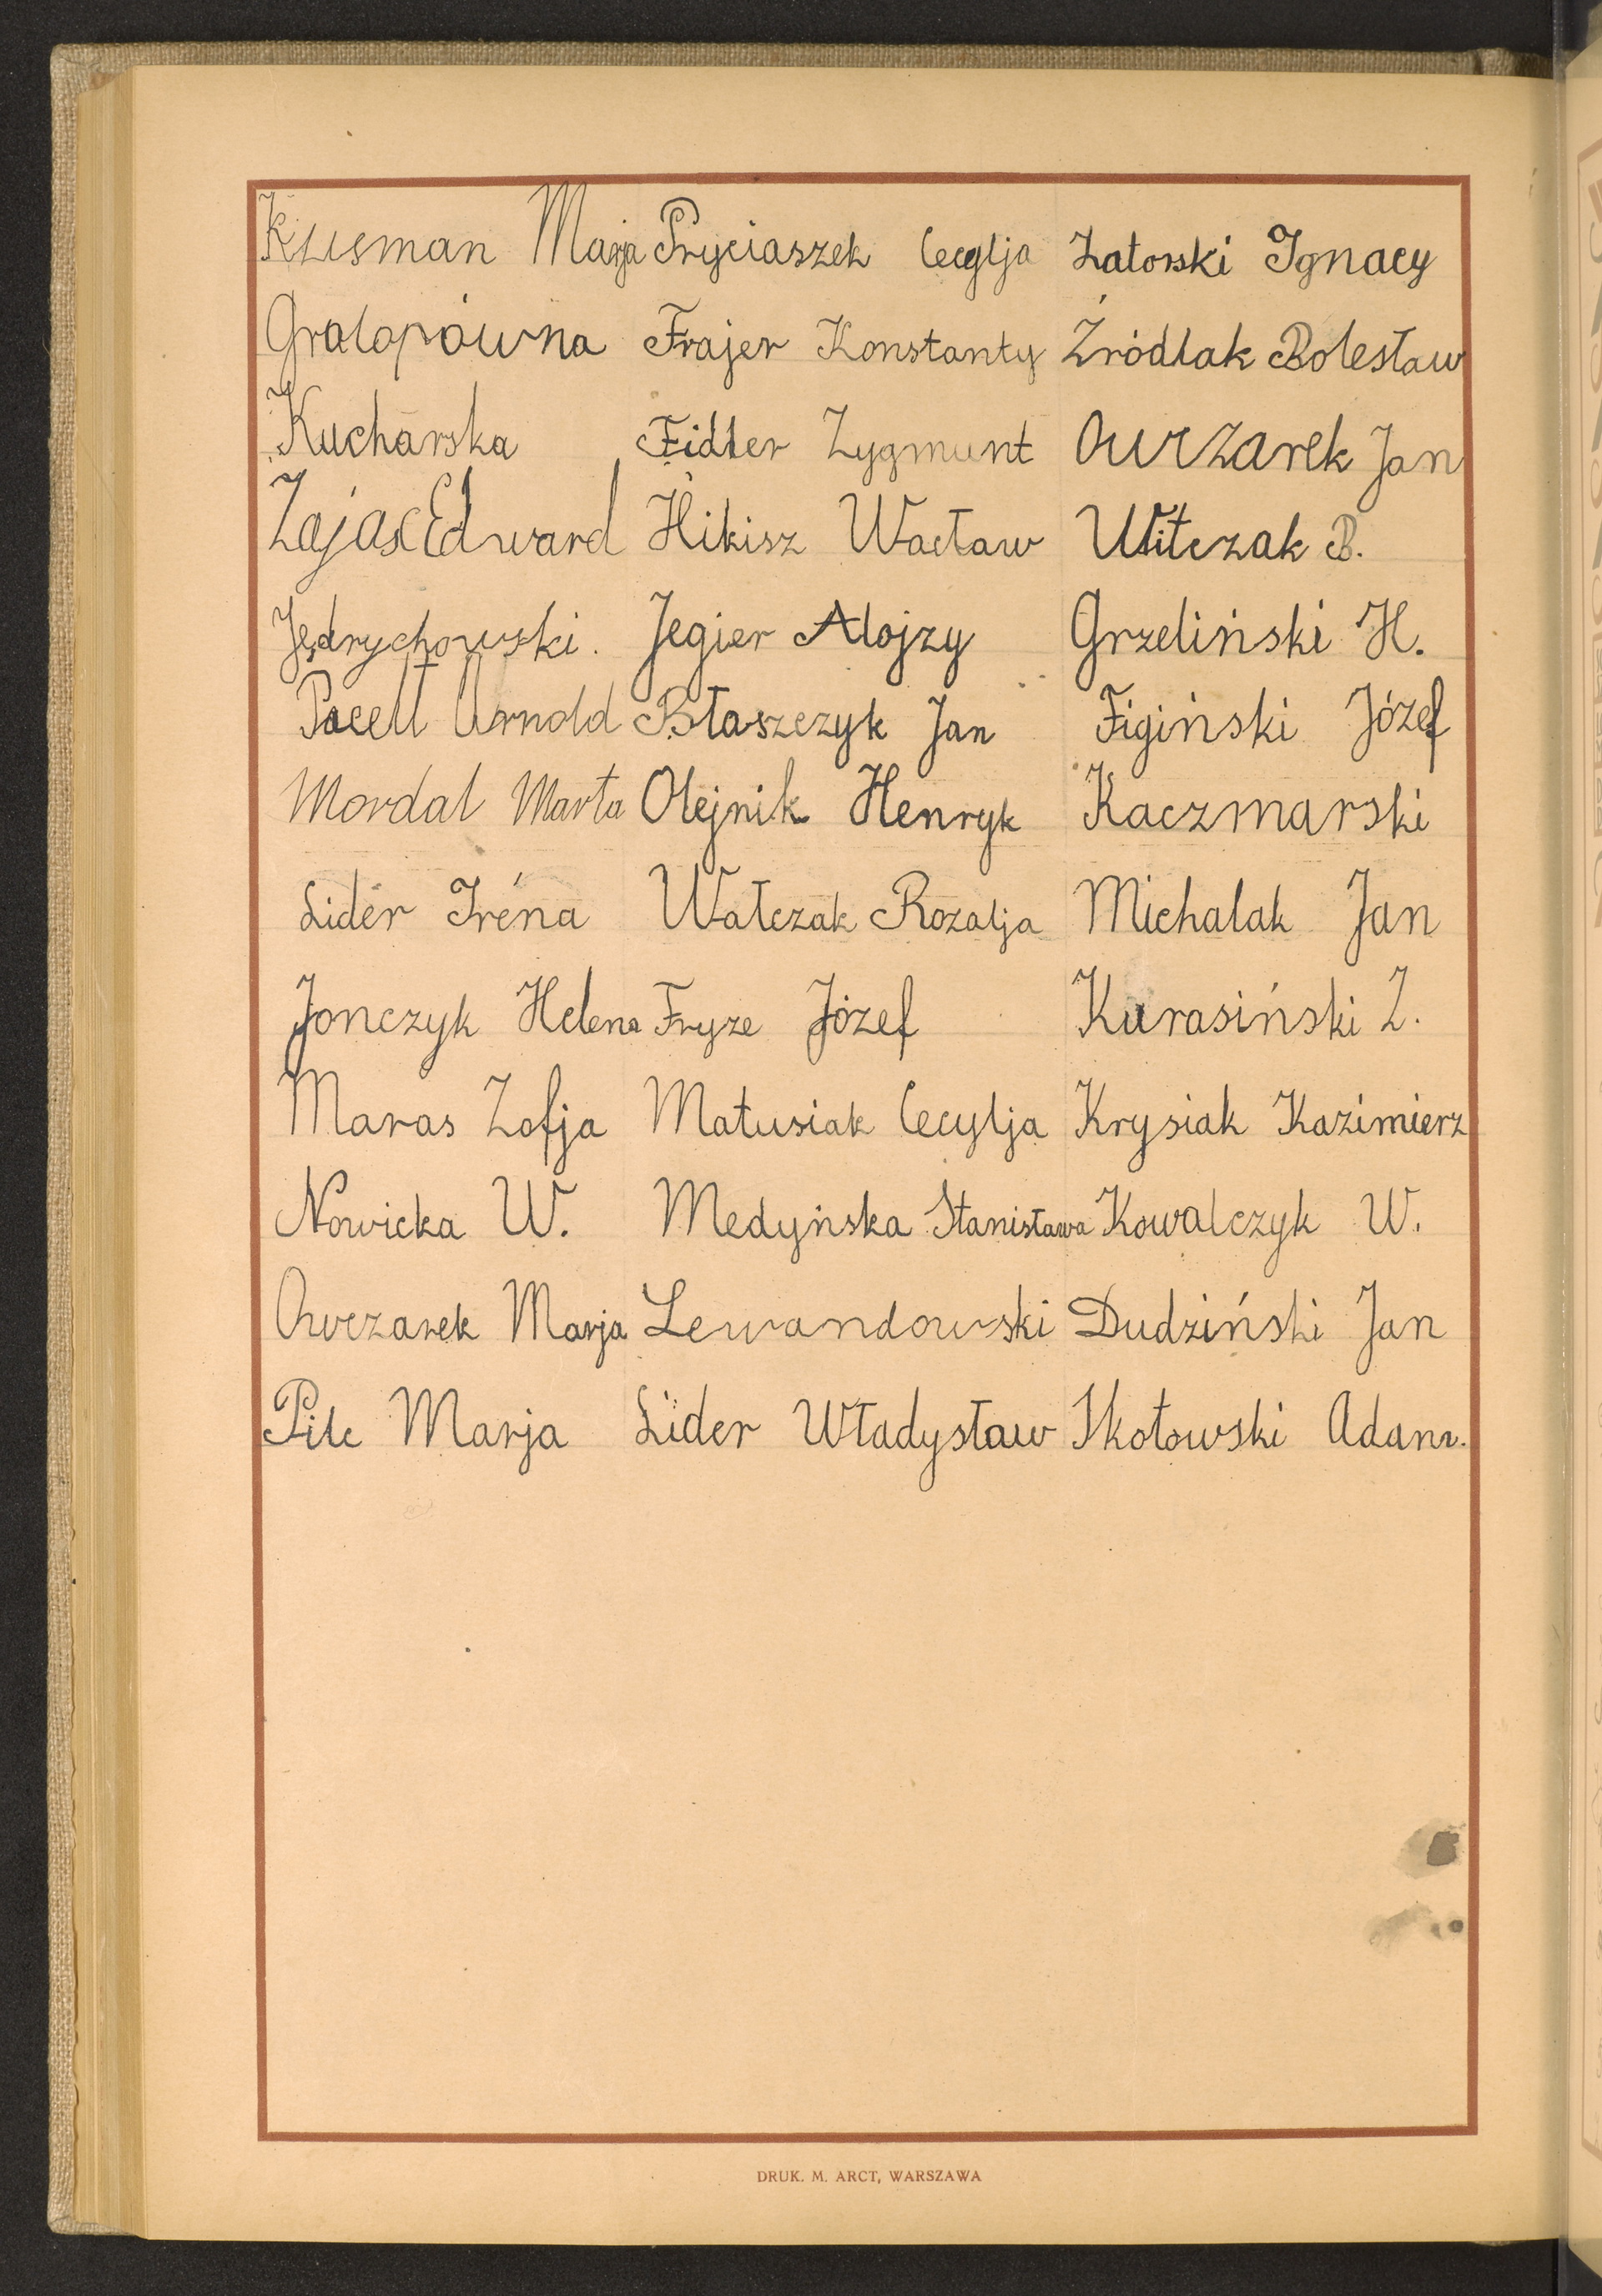 Klisman Marja Pryciaszek Cecylja Zatorski Ignacy
Gralopówna Frajer Konstanty Źródlak Bolesław
Kucharska Fidler Zygmunt Owczarek Jan
Zając Edward Hikisz Wacław Witczak B.
Jędrychowski. Jegier Alojzy Grzeliński H.
Pacelt Arnold Błaszczyk Jan Figiński Józef
Mordal Marta Olejnik Henryk Kaczmarski
Lider Iréna Walczak Rozalja Michalak Jan
Jonczyk Helena Fryze Józef Kurasiński Z.
Maras Zofja Matusiak Cecylja Krysiak Kazimierz
Nowicka W. Medyńska Stanisława Kowalczyk W.
Owczarek Marja Lewandowski Dudziński Jan
Pilc Marja Lider Władysław Skotowski Adam.
DRUK. M. ARCT, WARSZAWA